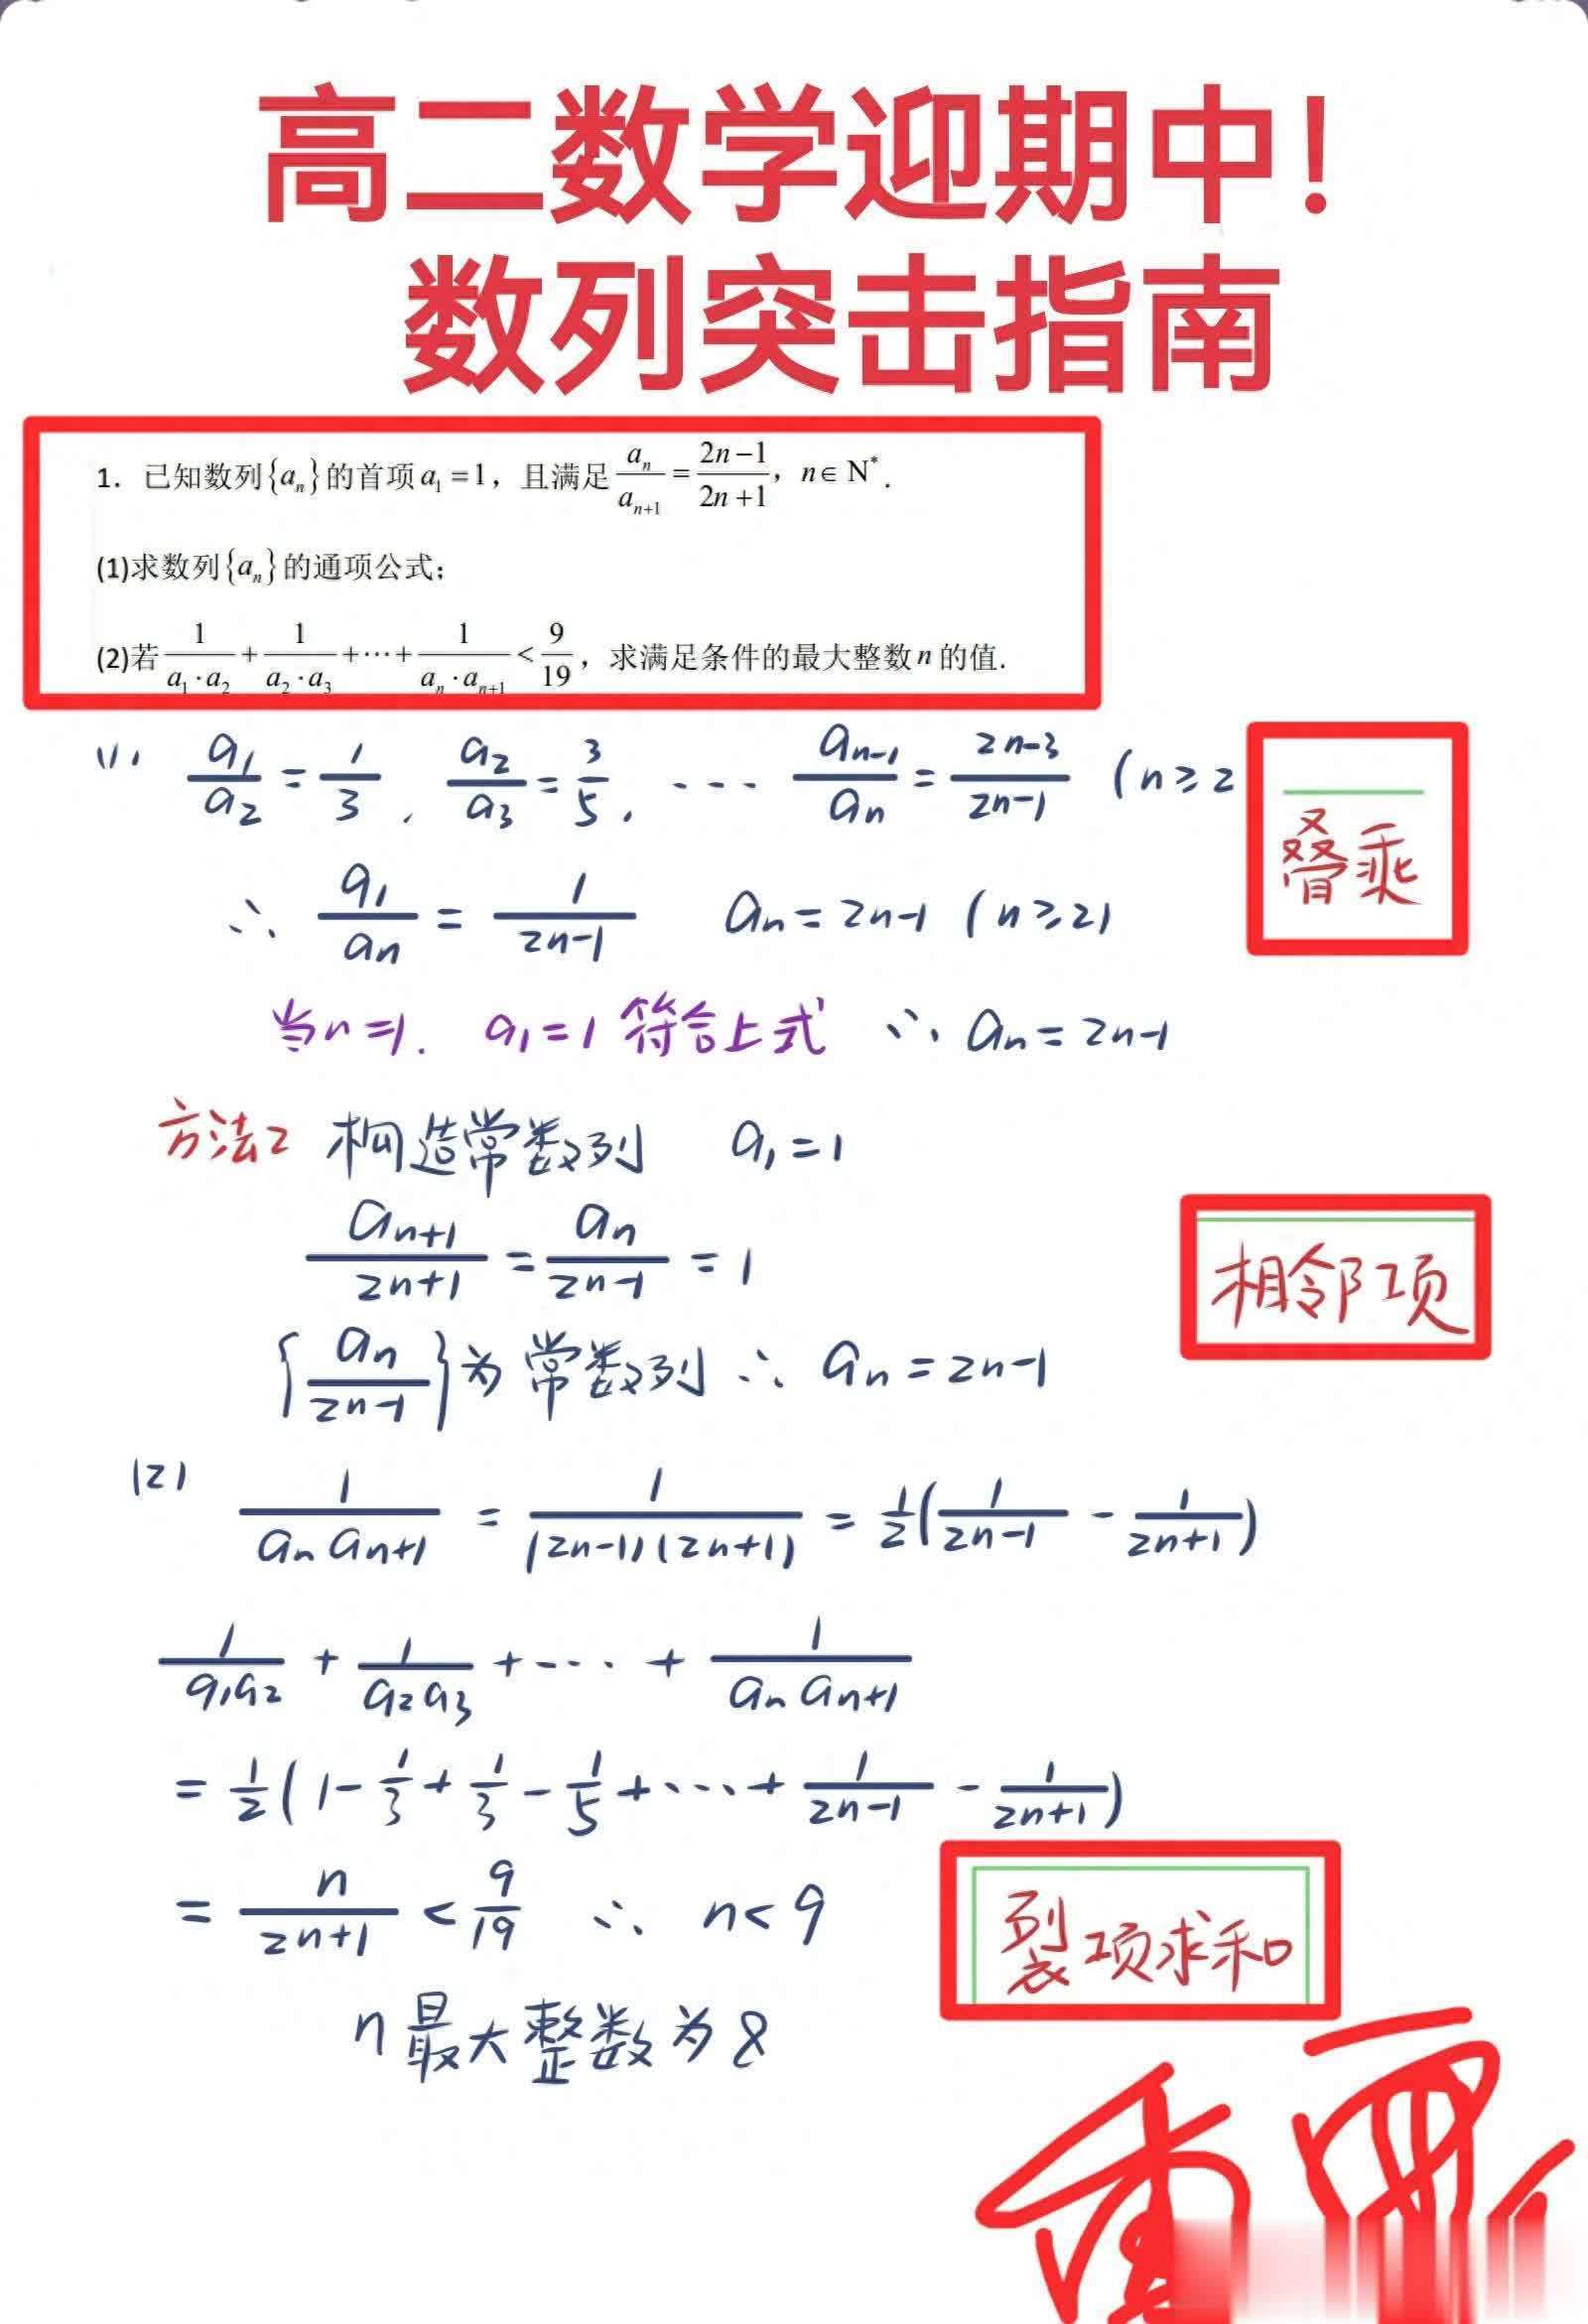 高二数学迎期中!
数列突击指南
1. 已知数列{aₙ}的首项a₁=1，且满足 aₙ/aₙ₊₁ = (2n-1)/(2n+1)，n∈N*.
(1)求数列{aₙ}的通项公式；
(2)若 1/(a₁·a₂) + 1/(a₂·a₃) +⋯+ 1/(aₙ·aₙ₊₁) < 9/19，求满足条件的最大整数n的值.
(1) a₁/a₂ = 1/3, a₂/a₃ = 3/5, ⋯ aₙ₋₁/aₙ = (2n-3)/(2n-1) (n≥2
叠乘
∴ a₁/aₙ = 1/(2n-1) aₙ=2n-1 (n≥2)
当n=1. a₁=1符合上式 ∵ aₙ=2n-1
方法2 构造常数列 a₁=1
aₙ₊₁/(2n+1) = aₙ/(2n-1) = 1
相邻项
{aₙ/(2n-1)}为常数列 ∴ aₙ=2n-1
(2) 1/(aₙaₙ₊₁) = 1/((2n-1)(2n+1)) = 1/2(1/(2n-1) - 1/(2n+1))
1/(a₁a₂) + 1/(a₂a₃) +⋯+ 1/(aₙaₙ₊₁)
= 1/2(1 - 1/3 + 1/3 - 1/5 +⋯+ 1/(2n-1) - 1/(2n+1))
= n/(2n+1) < 9/19 ∴ n<9
裂项求和
n最大整数为8